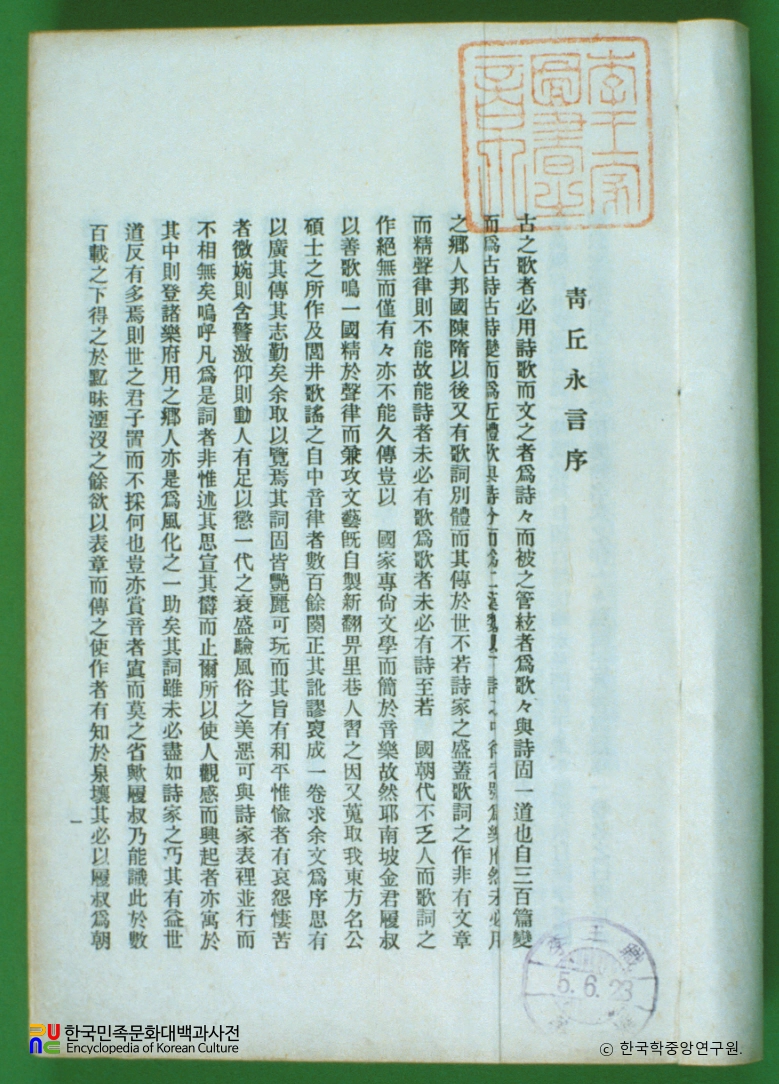 李王家
圖書
之章
靑丘永言序
古之歌者必用詩歌而文之者爲詩々而被之管絃者爲歌々與詩固一道也自三百篇變
而爲古詩古詩變而爲近體歌與詩分而爲二漢魏
之鄕人邦國陳隋以後又有歌詞別體而其傳於世不若詩家之盛蓋歌詞之作非有文章
而精聲律則不能故能詩者未必有歌爲歌者未必有詩至若 國朝代不乏人而歌詞之
作絕無而僅有々亦不能久傳豈以 國家專尙文學而簡於音樂故然耶南坡金君履叔
以善歌鳴一國精於聲律而兼攻文藝旣自製新翻畀里巷人習之因又蒐取我東方名公
碩士之所作及閭井歌謠之自中音律者數百餘闋正其訛謬裒成一卷求余文爲序思有
以廣其傳其志勤矣余取以覽焉其詞固皆艶麗可玩而其旨有和平惟愉者有哀怨悽苦
者微婉則含警激仰則動人有足以懲一代之衰盛驗風俗之美惡可與詩家表裡並行而
不相無矣嗚呼凡爲是詞者非惟述其思宣其欝而止爾所以使人觀感而興起者亦寓於
其中則登諸樂府用之鄕人亦是爲風化之一助矣其詞雖未必盡如詩家之巧其有益世
道反有多焉則世之君子置而不採何也豈亦賞音者寘而莫之省歟履叔乃能識此於數
百載之下得之於䵝昧湮沒之餘欲以表章而傳之使作者有知於泉壤其必以履叔爲朝
一
5.6.23
한국민족문화대백과사전
Encyclopedia of Korean Culture
ⓒ 한국학중앙연구원.